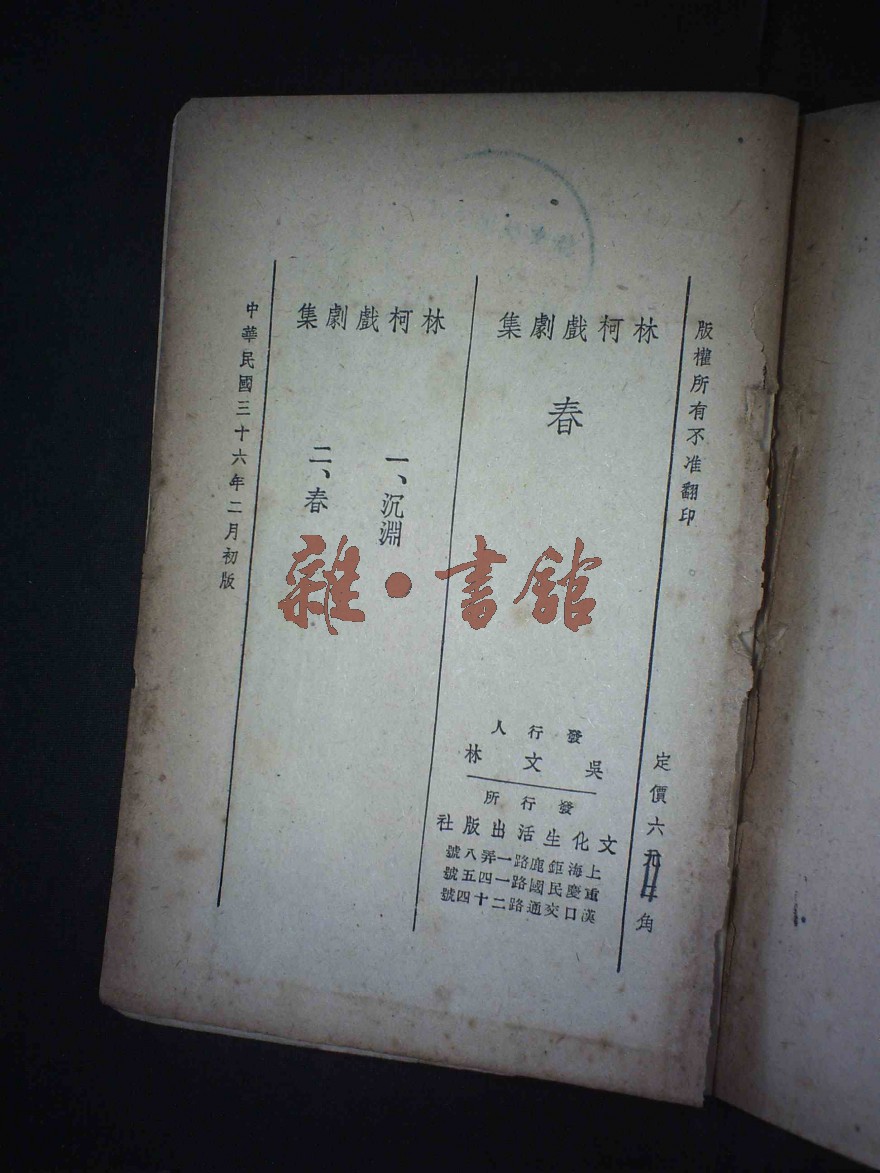 版權所有不准翻印
定價六元二角
林柯戲劇集
春
發行人
吳文林
發行所
文化生活出版社
上海鉅鹿路一弄八號
重慶民國路一四五號
漢口交通路二十四號
林柯戲劇集
一、沉淵
二、春
中華民國三十六年二月初版
雜·書館